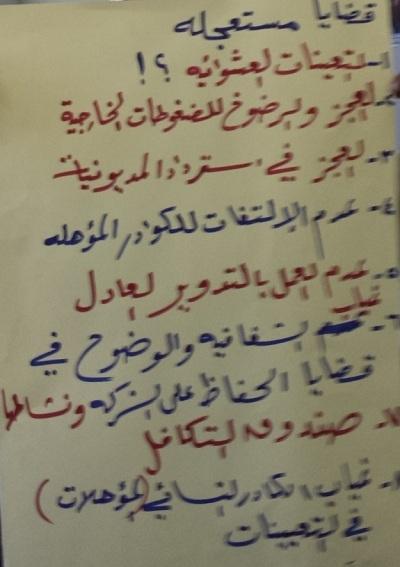 قضايا مستعجله
١- التعينات العشوائيه ؟!
٢- العجز والرضوخ للضغوطات الخارجية
٣- العجز في استرداد المديونيات
٤- عدم الإلتفات للكوادر المؤهله
٥- عدم العمل بالتدوير العادل
٦- غياب الشفافيه والوضوح في
قضايا الحفاظ على الشركه ونشاطها
٧- صندوق التكافل
٨- غياب الكادر النسائي (المؤهلات)
في التعيينات